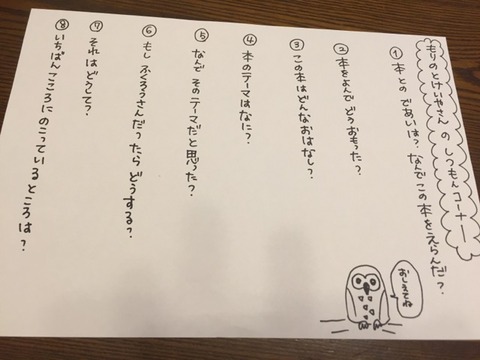 もりのとけいやさん の しつもんコーナー
① 本との であいは？なんでこの本をえらんだ？
② 本をよんで どうおもった？
③ この本はどんなおはなし？
④ 本のテーマはなに？
⑤ なんで そのテーマだと思った？
⑥ もし ふくろうさんだったら どうする？
⑦ それは どうして？
⑧ いちばん こころに のこっているところは？
おしえてね